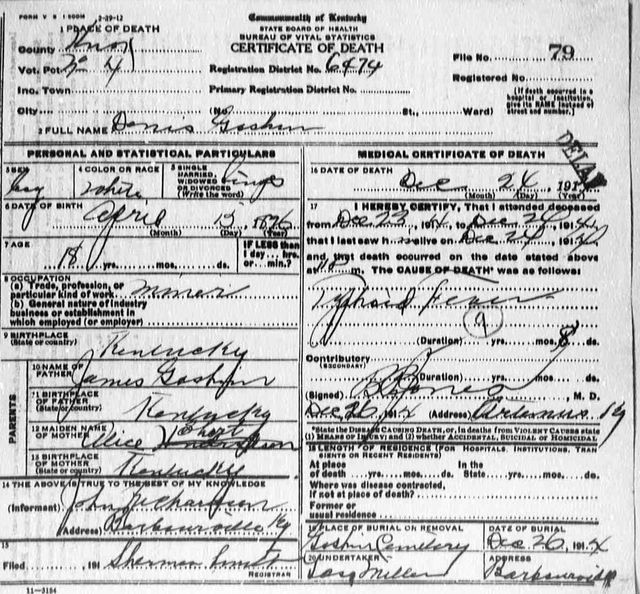 FORM V S 1 500M 2-29-12
Commonwealth of Kentucky
STATE BOARD OF HEALTH
BUREAU OF VITAL STATISTICS
CERTIFICATE OF DEATH
1 PLACE OF DEATH
County Knox
Vot. Pct. No 4
Inc. Town
City
Registration District No. 6474
Primary Registration District No.
(No. St., Ward)
File No. 79
Registered No.
(If death occurred in a hospital or institution, give its NAME instead of street and number.)
2 FULL NAME Donis Goshen
DELAY
PERSONAL AND STATISTICAL PARTICULARS
3 SEX
Boy
4 COLOR OR RACE
white
5 SINGLE, MARRIED, WIDOWED OR DIVORCED (Write the word)
Single
6 DATE OF BIRTH
April 3, 1896
(Month) (Day) (Year)
7 AGE
18 yrs. mos. ds.
IF LESS than 1 day... hrs. or... min.?
8 OCCUPATION
(a) Trade, profession, or particular kind of work miner
(b) General nature of industry business or establishment in which employed (or employer)
9 BIRTHPLACE
(State or country)
Kentucky
PARENTS
10 NAME OF FATHER
James Goshen
11 BIRTHPLACE OF FATHER
(State or country)
Kentucky
12 MAIDEN NAME OF MOTHER
Alice Short
13 BIRTHPLACE OF MOTHER
(State or country)
Kentucky
14 THE ABOVE IS TRUE TO THE BEST OF MY KNOWLEDGE
(Informant) John Richardson
(Address) Barbourville Ky
15
Filed 191 Sherman Smith
REGISTRAR
11-3184
MEDICAL CERTIFICATE OF DEATH
16 DATE OF DEATH
Dec 24, 191
(Month) (Day) (Year)
17 I HEREBY CERTIFY, That I attended deceased
from Dec 23, 1914, to Dec 24, 1914
that I last saw h alive on Dec 24, 1914
and that death occurred on the date stated above
at m. The CAUSE OF DEATH* was as follows:
Typhoid Fever
9
(Duration) yrs. mos. 8 ds.
Contributory
(SECONDARY)
(Duration) yrs. mos. ds.
(Signed) Jones, M. D.
Dec 26, 1914 (Address) Artemus Ky
*State the DISEASE CAUSING DEATH, or, in deaths from VIOLENT CAUSES state (1) MEANS OF INJURY; and (2) whether ACCIDENTAL, SUICIDAL OR HOMICIDAL
18 LENGTH OF RESIDENCE (FOR HOSPITALS, INSTITUTIONS, TRANSIENTS OR RECENT RESIDENTS)
At place of death yrs. mos. ds. In the State yrs. mos. ds.
Where was disease contracted, if not at place of death?
Former or usual residence
19 PLACE OF BURIAL OR REMOVAL
Goshen Cemetery
DATE OF BURIAL
Dec 26, 1914
20 UNDERTAKER
Miller
ADDRESS
Barbourville